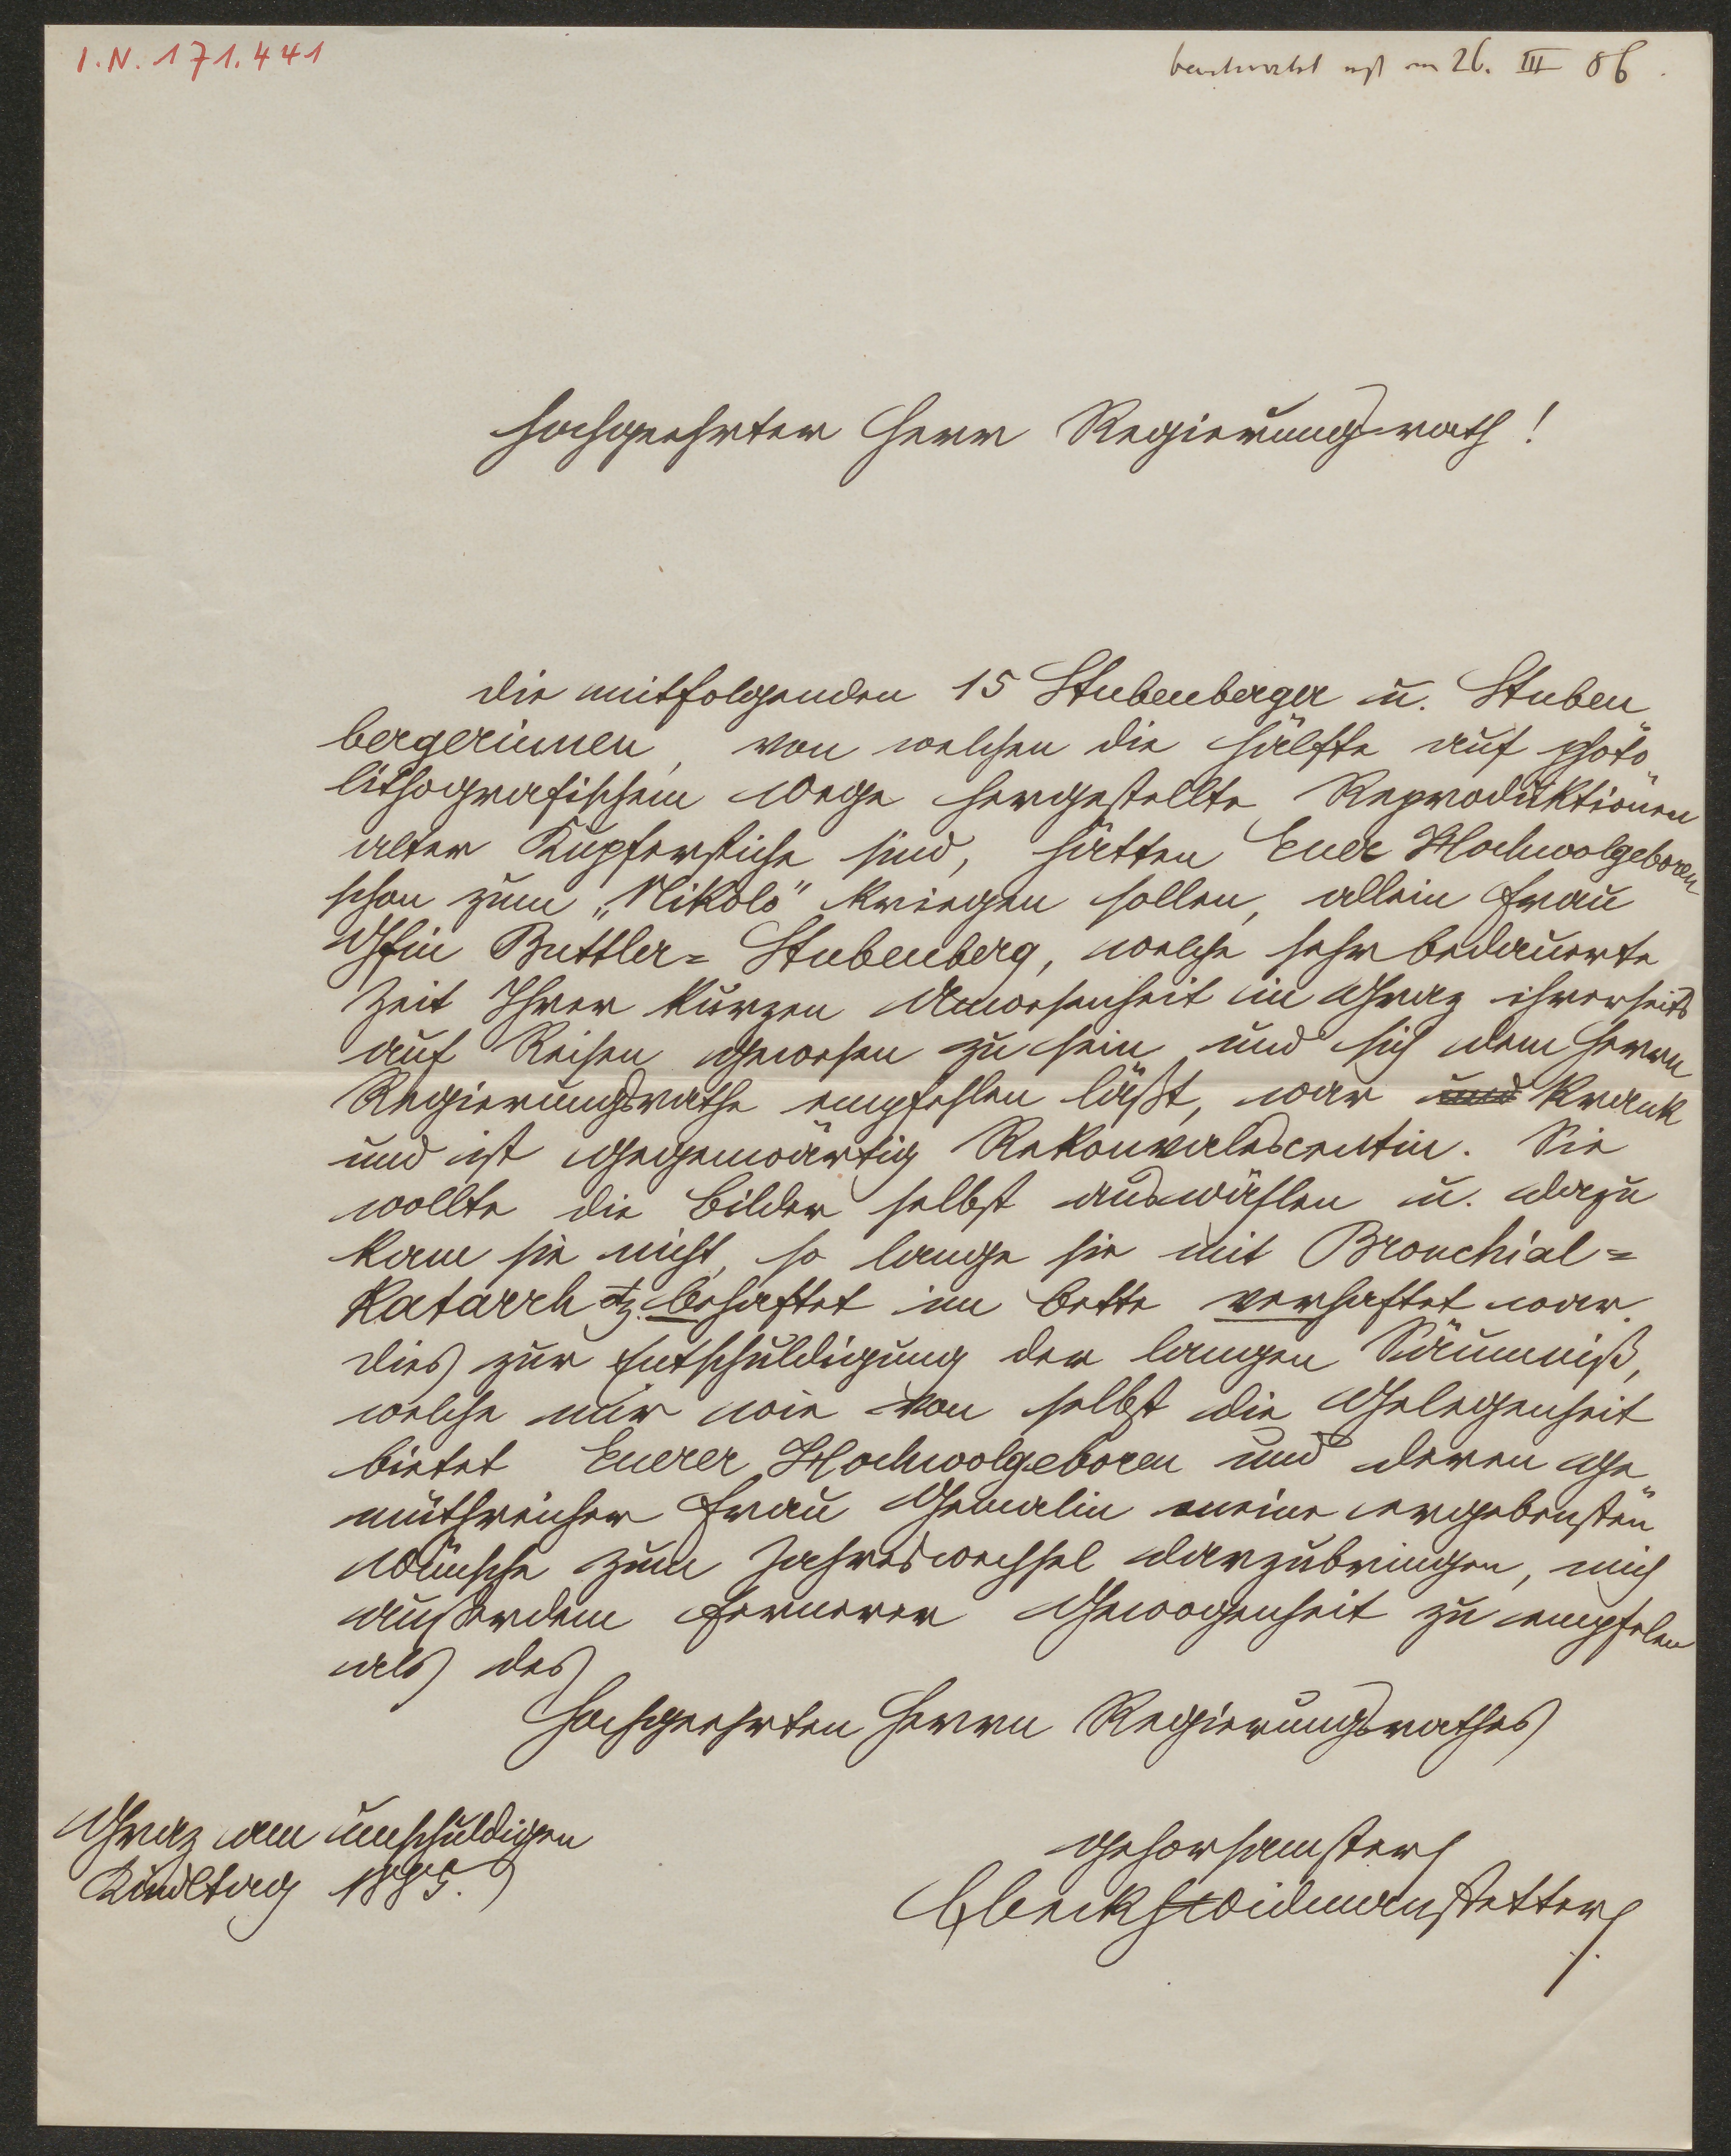 I.N. 171.441
beantwortet erst am 26. III 86.
Hochgeehrter Herr Regierungsrath!
Die mitfolgenden 15 Stubenberger u. Stuben
bergerinnen, von welchen die Hälfte auf photo„
lithografischem Wege hergestellte Reproduktionen
alter Kupferstiche sind, hätten Euer Hochwolgeboren
schon zum „Nikolo“ kriegen sollen, allein Frau
Gfin Buttler=Stubenberg, welche sehr bedauerte
Zeit Ihrer kurzen Anwesenheit in Graz ihrerseits
auf Reisen gewesen zu sein und sich dem Herrn
Regierungsrathe empfehlen läßt, war und krank
und ist gegenwärtig Rekonvalescentin. Sie
wollte die Bilder selbst auswählen u. dazu
kam sie nicht, so lange sie mit Bronchial=
Katarrh etz. behaftet im Bette verhaftet war.
Dies zur Entschuldigung der langen Säumniß,
welche mir wie von selbst die Gelegenheit
bietet Euerer Hochwolgeboren und deren ge„
müthreicher Frau Gemalin meine ergebensten
Wünsche zum Jahreswechsel darzubringen, mich
außerdem fernerer Gewogenheit zu empfelen
als des
Hochgeehrten Herrn Regierungsrathes
Graz am unschuldigen
Kindltag 1885.
gehorsamster
LBeckhWidmanstetter